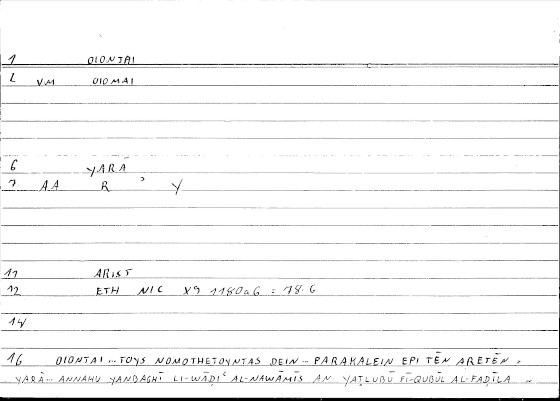 1 OIONTAI
2 VM OIOMAI
6 YARĀ
7 AA R ʾ Y
11 ARIST
12 ETH NIC X9 1180a6 = 78.6
14
16 OIONTAI ... TOYS NOMOTHETOYNTAS DEIN ... PARAKALEIN EPI TĒN ARETĒN .
YARĀ ... ANNAHU YANBAGHĪ LI-WĀḌIʿ AL-NAWĀMĪS AN YAṬLUBŪ FĪ-QUBŪL AL-FAḌĪLA